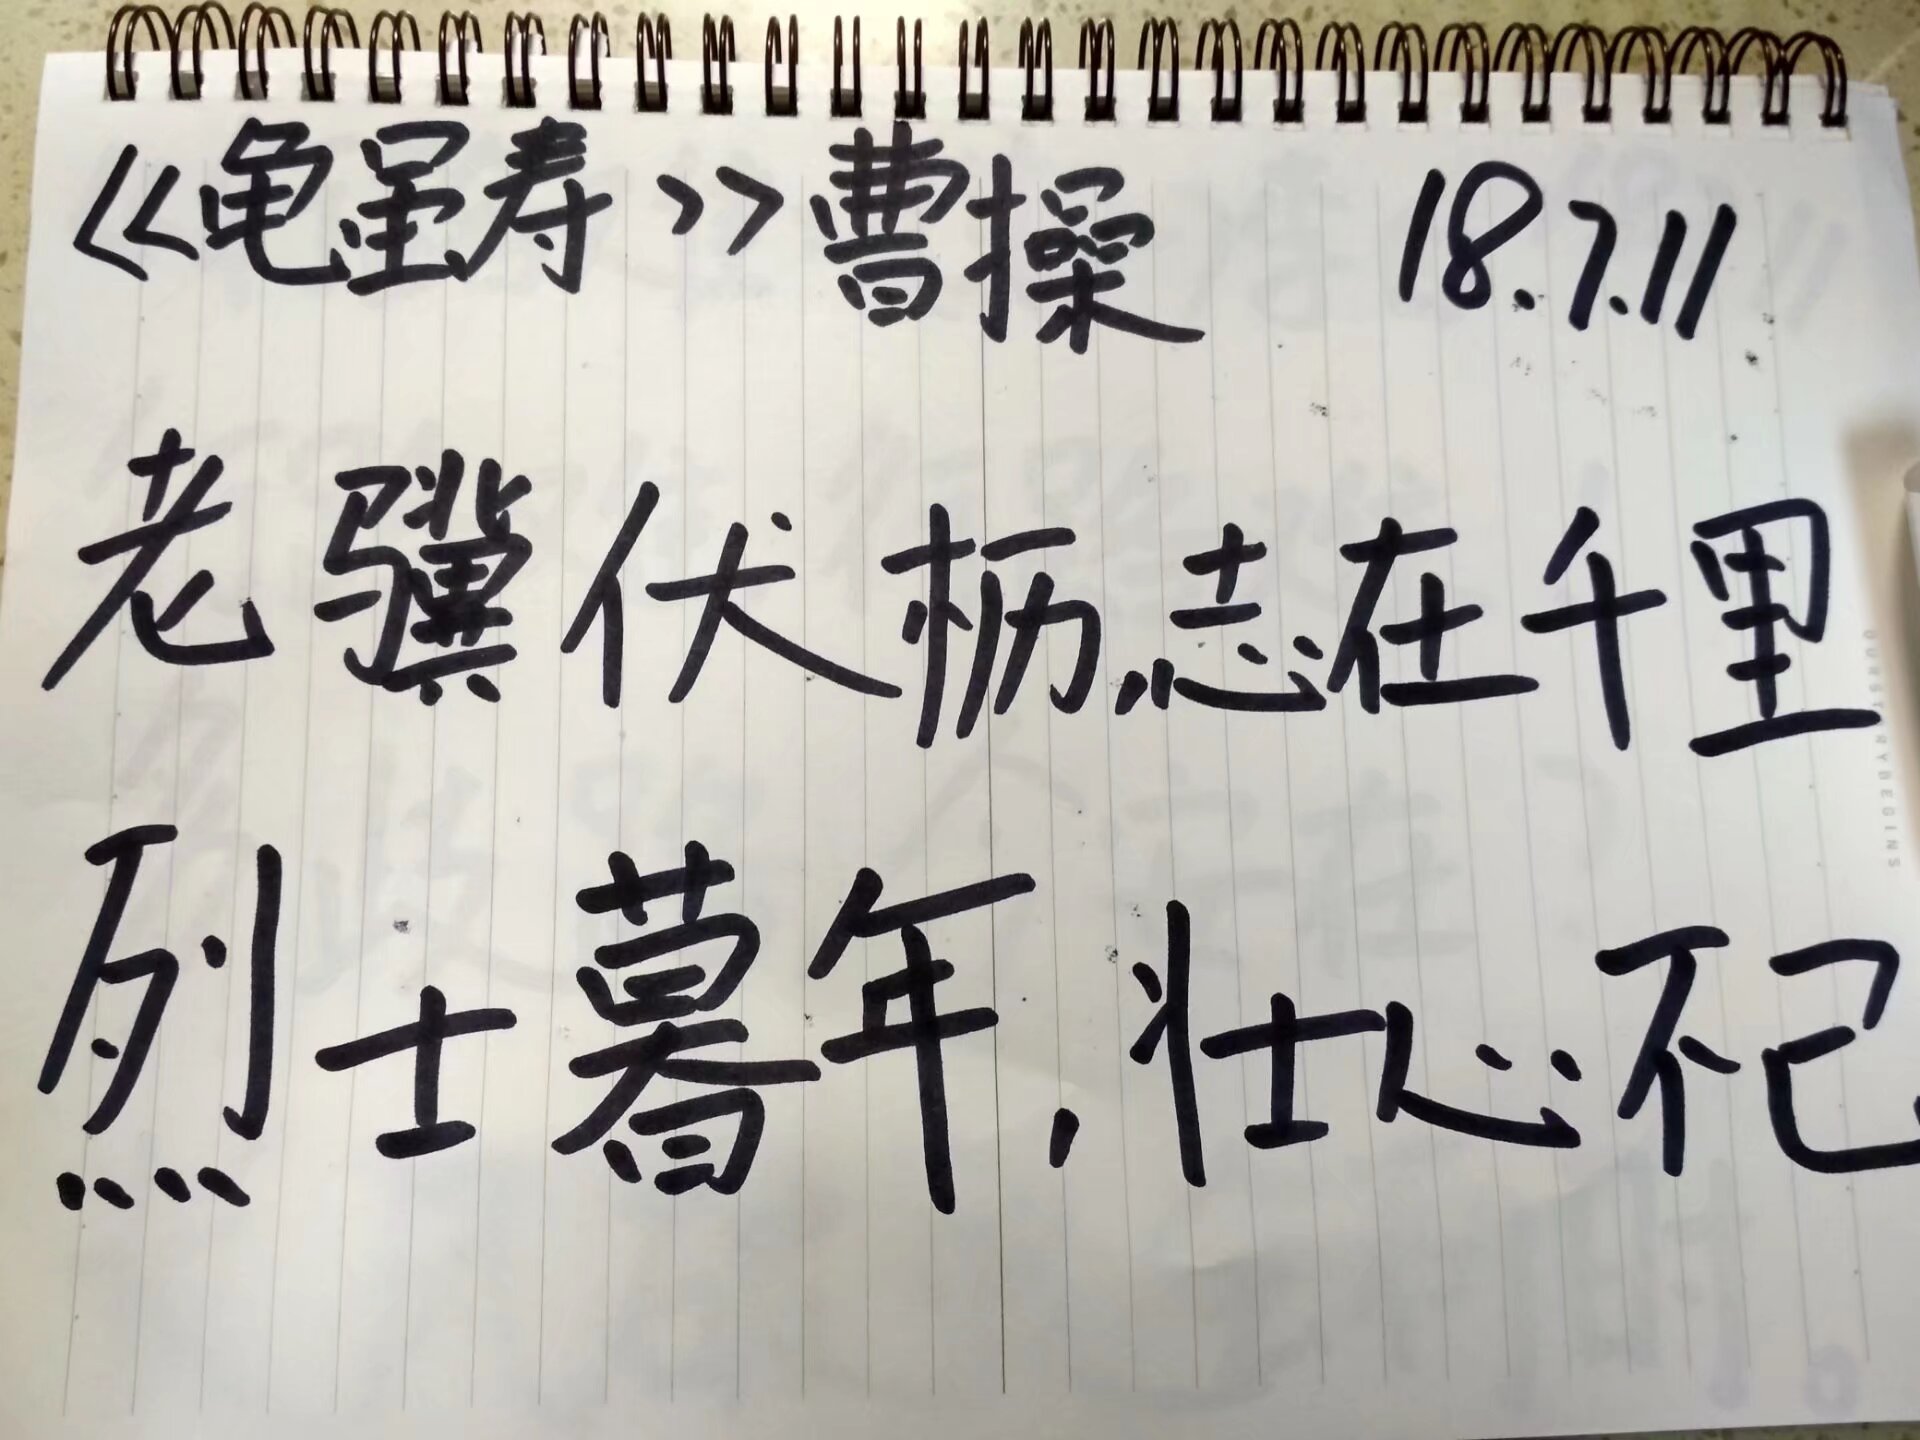 <<龟虽寿>>曹操 18.7.11
老骥伏枥,志在千里
烈士暮年,壮心不已
OURSTORYBEGINS